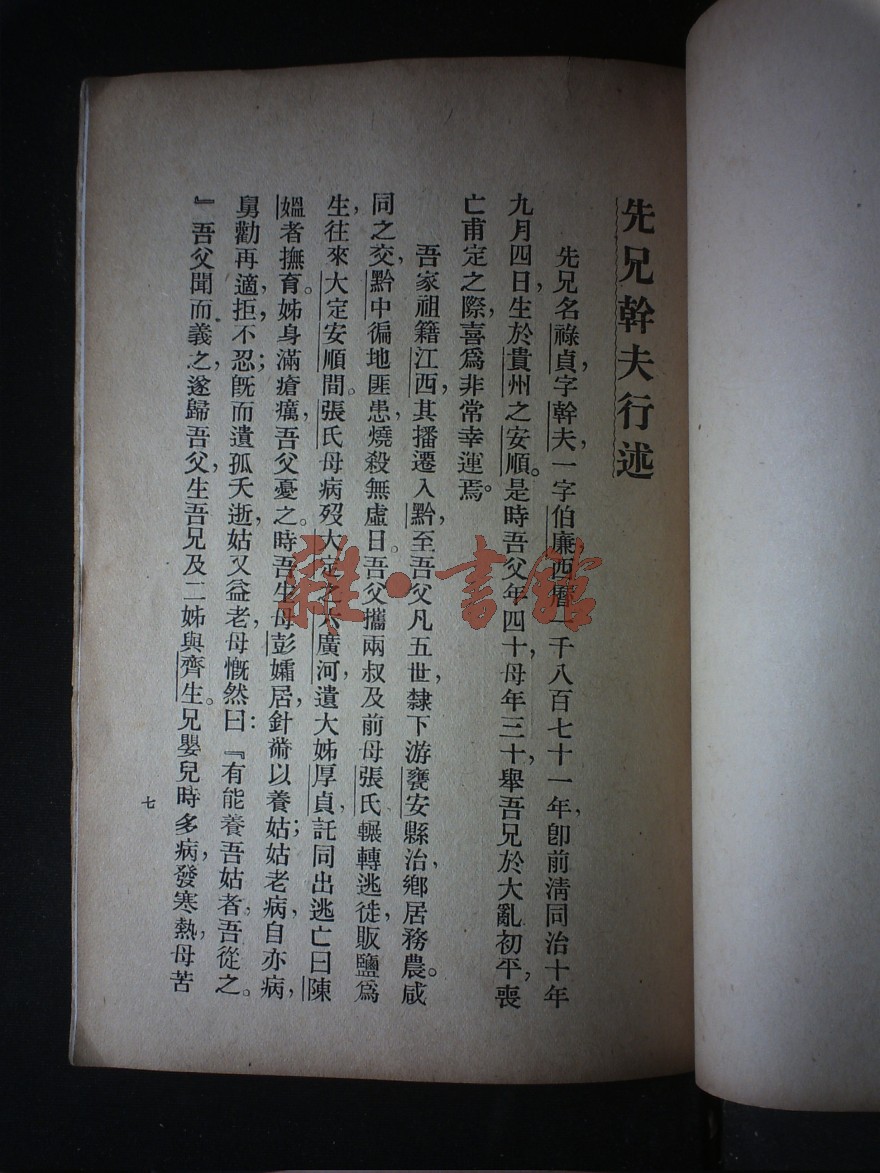 先兄幹夫行述
先兄名祿貞，字幹夫，一字伯廉，西曆一千八百七十一年，卽前淸同治十年
九月四日，生於貴州之安順。是時吾父年四十，母年三十，舉吾兄於大亂初平，喪
亡甫定之際，喜爲非常幸運焉。
吾家祖籍江西，其播遷入黔，至吾父凡五世，隸下游甕安縣治，鄕居務農。咸
同之交，黔中徧地匪患，燒殺無虛日。吾父攜兩叔及前母張氏輾轉逃徙，販鹽爲
生，往來大定安順間。張氏母病歿大定之六廣河，遺大姊厚貞，託同出逃亡曰陳
媼者撫育。姊身滿瘡癘，吾父憂之。時吾生母彭孀居，針黹以養姑；姑老病，自亦病，
舅勸再適，拒，不忍；旣而遺孤夭逝，姑又益老，母慨然曰：『有能養吾姑者，吾從之。
』吾父聞而義之，遂歸吾父，生吾兄及二姊與齊生。兄嬰兒時多病，發寒熱，母苦
七
雜·書館